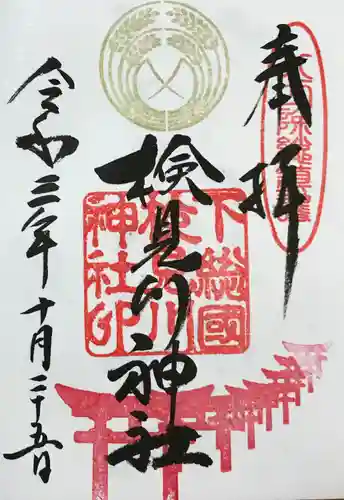 奉拝
検見川神社
下総国
検見川
神社印
令和三年十月二十五日